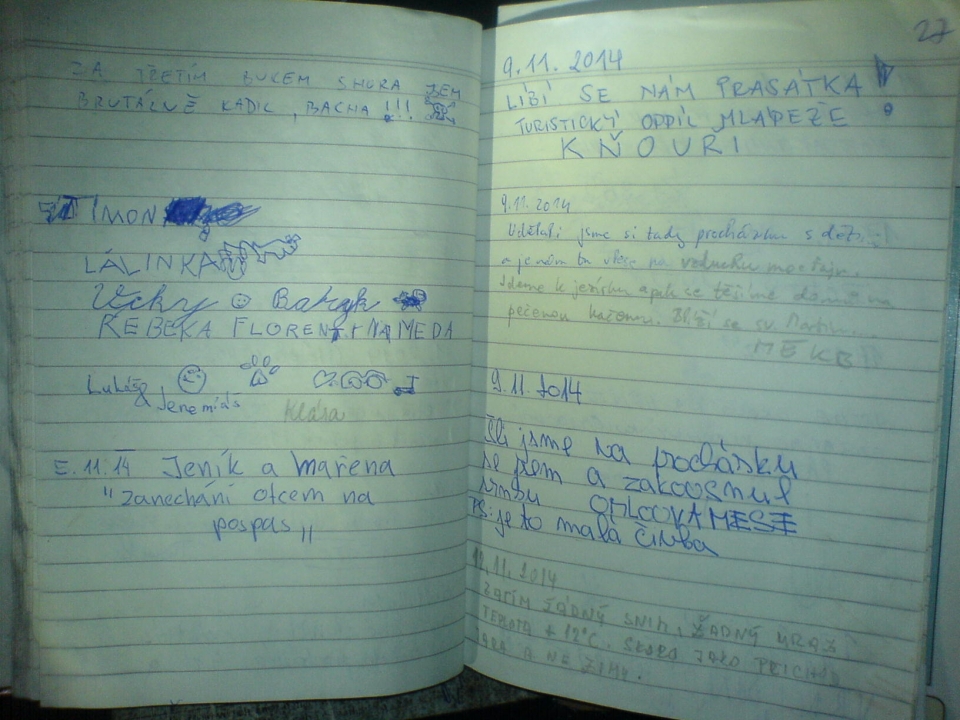 ZA TŘETÍM BUKEM SHORA JSEM
BRUTÁLNĚ KADIL, BACHA !!!
IMON
LÁLINKA
Vicky ☺
REBEKA FLORENT, NAMEDA
Lukáš
& Jeremiáš
Klára
8.11.14 Jeník a Mařena
"zanecháni otcem na
pospas"
27
9.11.2014
LÍBÍ SE NÁM PRASÁTKA !
TURISTICKÝ ODDÍL MLÁDEŽE
KŇOUŘI
9.11.2014
Udělali jsme si tady procházku s dětmi
a je nám tu na vzduchu
Jdeme k jezírku a pak se těšíme domů na
pečenou kachnu. Blíží se sv. Martin.
9.11.2014
Šli jsme na procházku
se psem a
PS: je to malá čivba
12.11.2014
ZATÍM ŽÁDNÝ SNÍH, ŽÁDNÝ MRÁZ
TEPLOTA + 12°C. SKORO JAKO PŘÍCHOD
JARA A NE ZIMY.